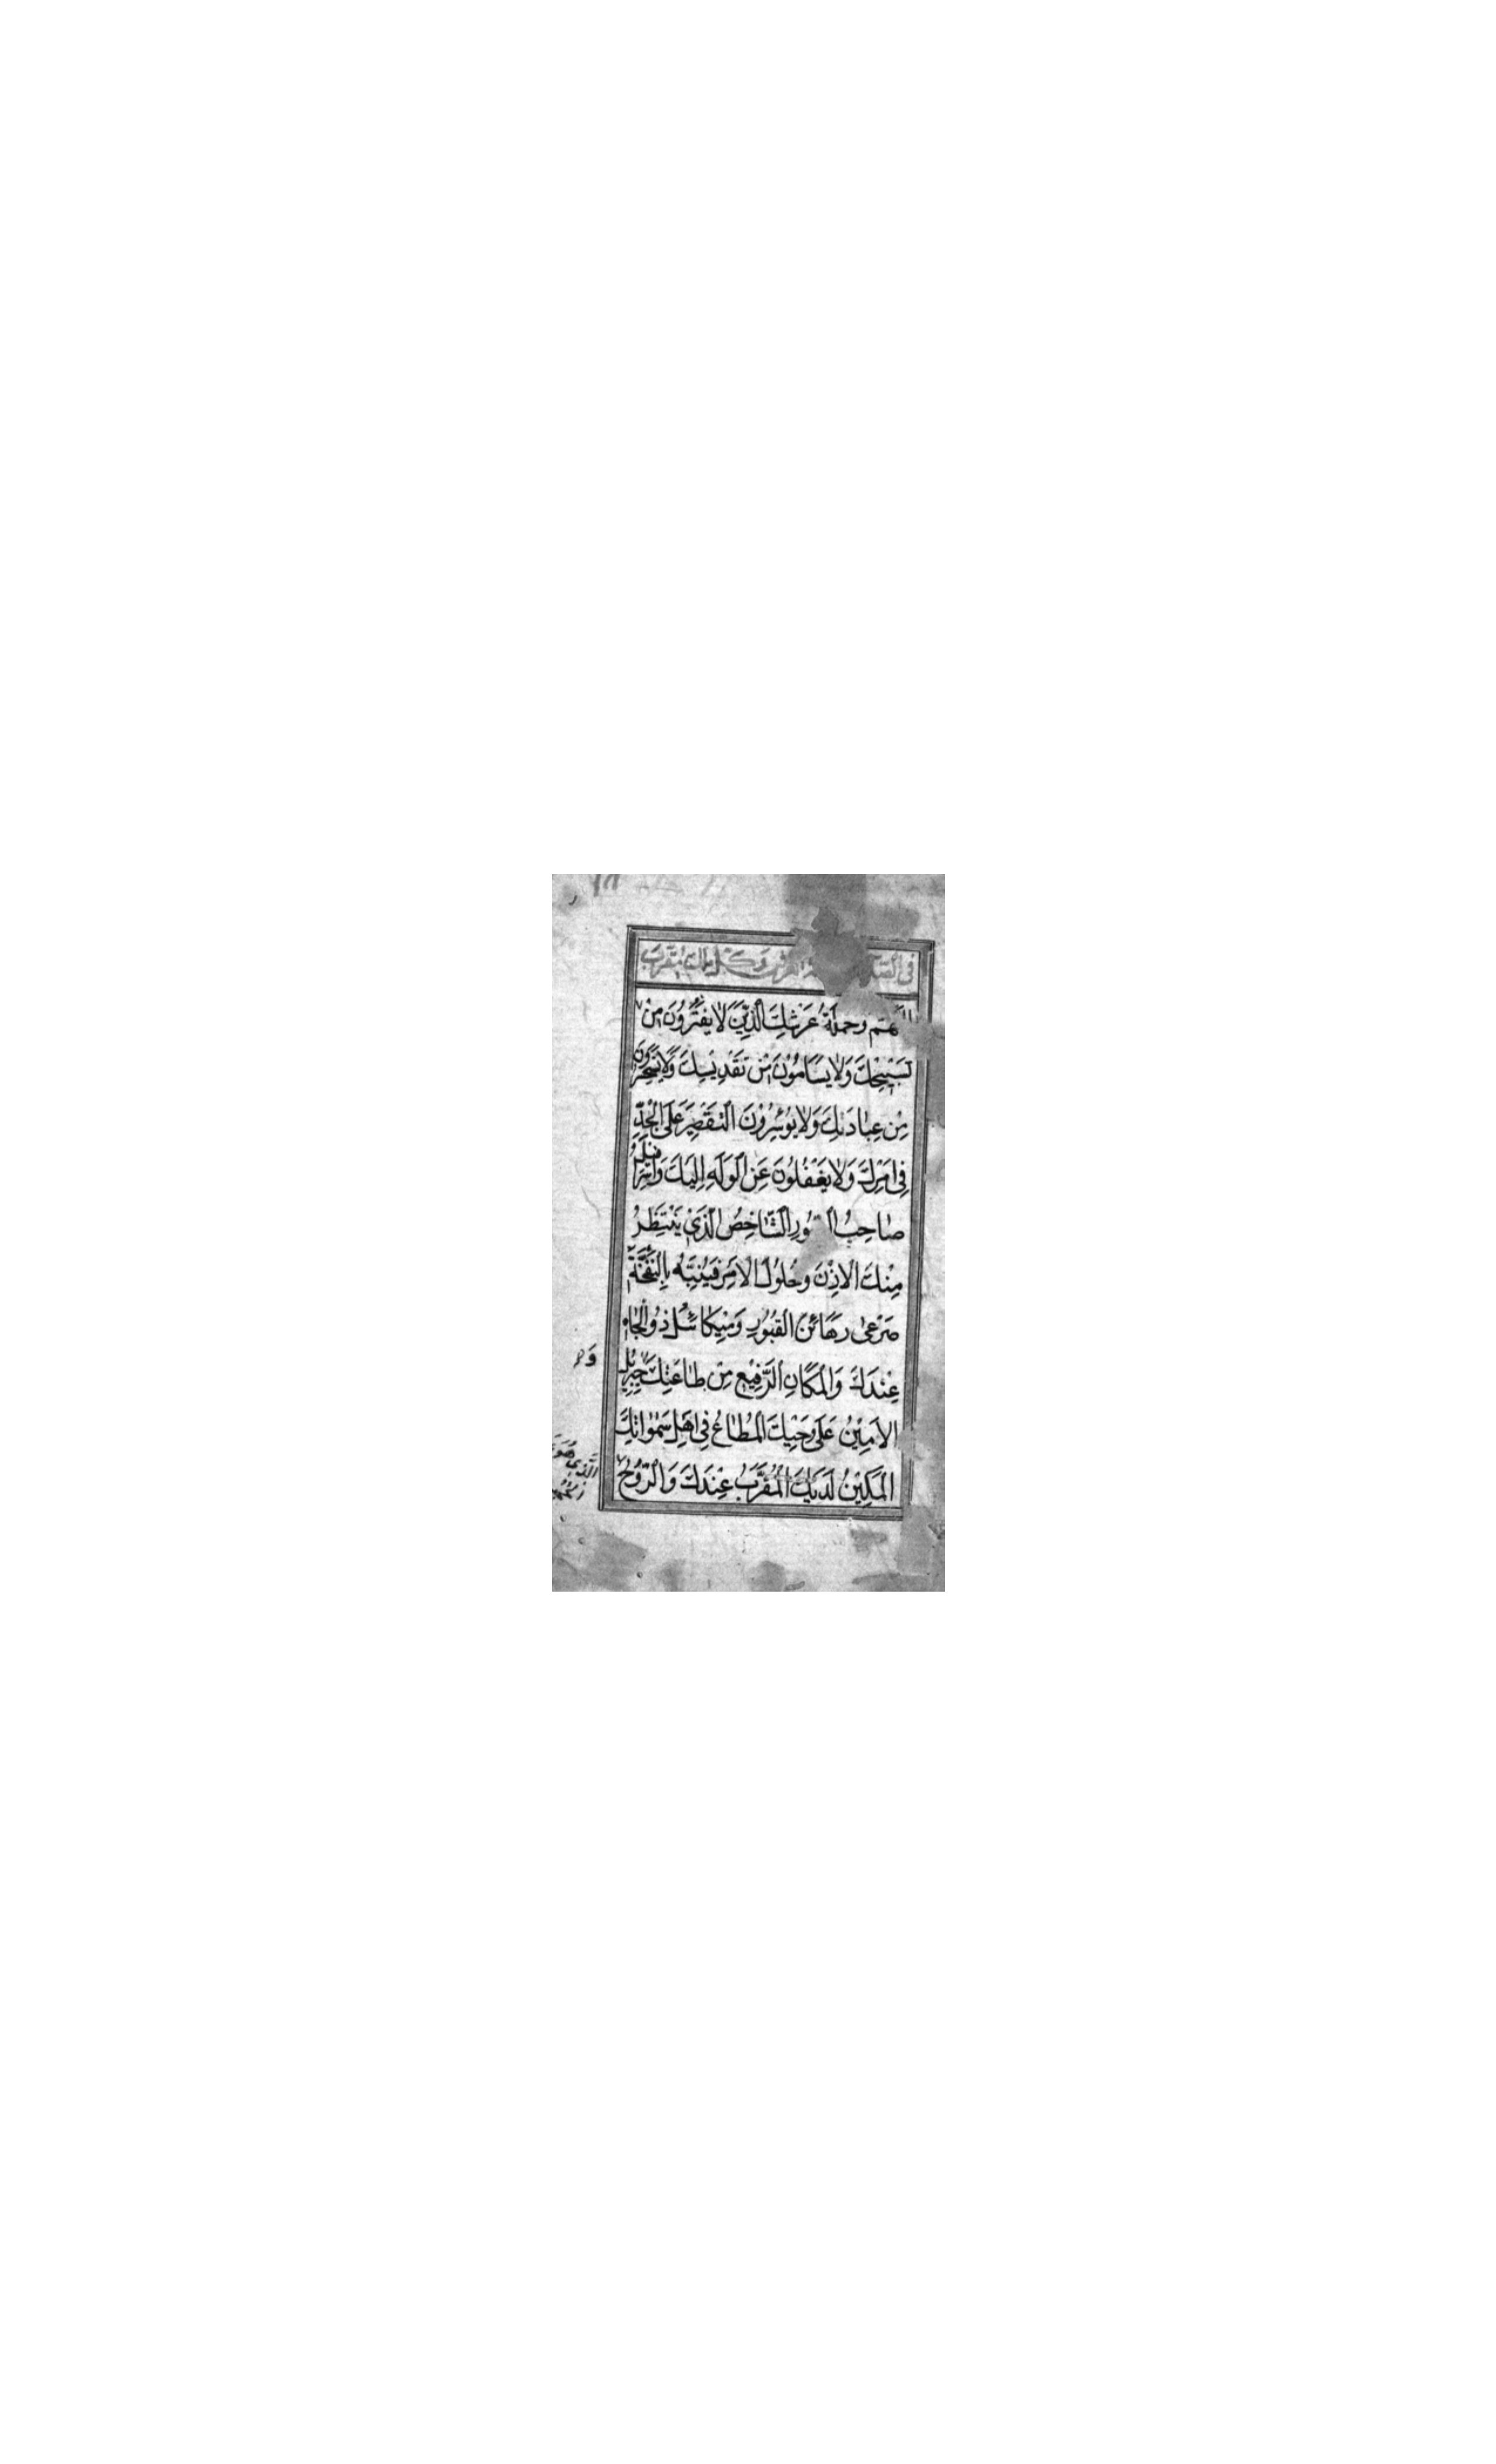 وَكُلِّ مَلَكٍ مُقَرَّبٍ
اللّٰهُمَّ وَحَمَلَةُ عَرْشِكَ الَّذِيْنَ لَا يَفْتُرُوْنَ مِنْ
تَسْبِيْحِكَ وَلَا يَسْاَمُوْنَ مِنْ تَقْدِيْسِكَ وَلَا يَسْتَحْسِرُوْنَ
مِنْ عِبَادَتِكَ وَلَا يُؤْثِرُوْنَ التَّقْصِيْرَ عَلَى الْجِدِّ
فِيْ اَمْرِكَ وَلَا يَغْفُلُوْنَ عَنِ الْوَلَهِ اِلَيْكَ وَاِسْرَافِيْلُ
صَاحِبُ الصُّوْرِ الشَّاخِصُ الَّذِيْ يَنْتَظِرُ
مِنْكَ الْاِذْنَ وَحُلُوْلَ الْاَمْرِ فَيُنَبِّهُ بِالنَّفْخَةِ
صَرْعٰى رَهَائِنِ الْقُبُوْرِ وَمِيْكَائِيْلُ ذُو الْجَاهِ
عِنْدَكَ وَالْمَكَانِ الرَّفِيْعِ مِنْ طَاعَتِكَ جِبْرِيْلُ
الْاَمِيْنُ عَلٰى وَحْيِكَ الْمُطَاعُ فِيْ اَهْلِ سَمٰوَاتِكَ
الْمَكِيْنُ لَدَيْكَ الْمُقَرَّبُ عِنْدَكَ وَالرُّوْحُ
وَ